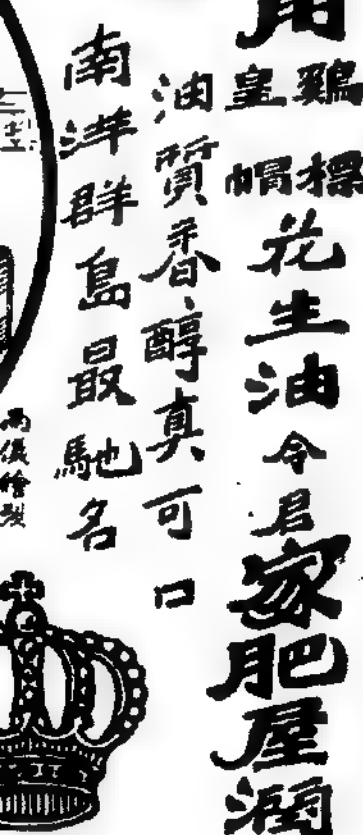 用雞標皇帽花生油令君家肥屋潤
油質香醇真可口
南洋群島最馳名